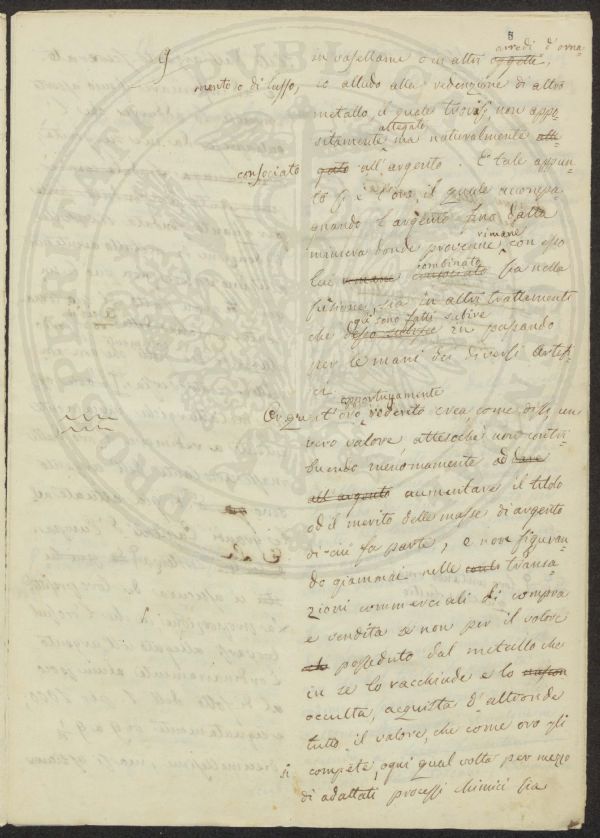 8
9
arredi d'orna-
in vasellame o in altri oggetti,
mento o di lusso, io alludo alla redenzione di altro
metallo, il quale trovisi, non appo-
allegato
sitamente ma naturalmente alle-
consociato gato all'argento. E tale appun-
to si è l'oro, il quale accompa-
gnando l'argento fino dalla
rimane
miniera donde provenne, con esso
combinato
lui rimane consociato sia nella
fusione, sia in altri trattamenti
gli sono fatti subire
che in passando
per le mani dei diversi artefi-
ci.
opportunamente
Or quest'oro redento crea, come dissi un
vero valore attesochè non contri-
buendo menomamente ad dare
all'argento aumentare il titolo
od il merito delle masse di argento
di cui fa parte, e non figuran-
do giammai nelle transa-
zioni commerciali di compra
e vendita se non per il valore
che posseduto dal metallo che
in se lo racchiude e lo nascon
occulta, acquista d'altronde
tutto il valore, che come oro gli
si compete, ogni qual volta per mezzo
di adattati processi chimici sia
PROSPERI